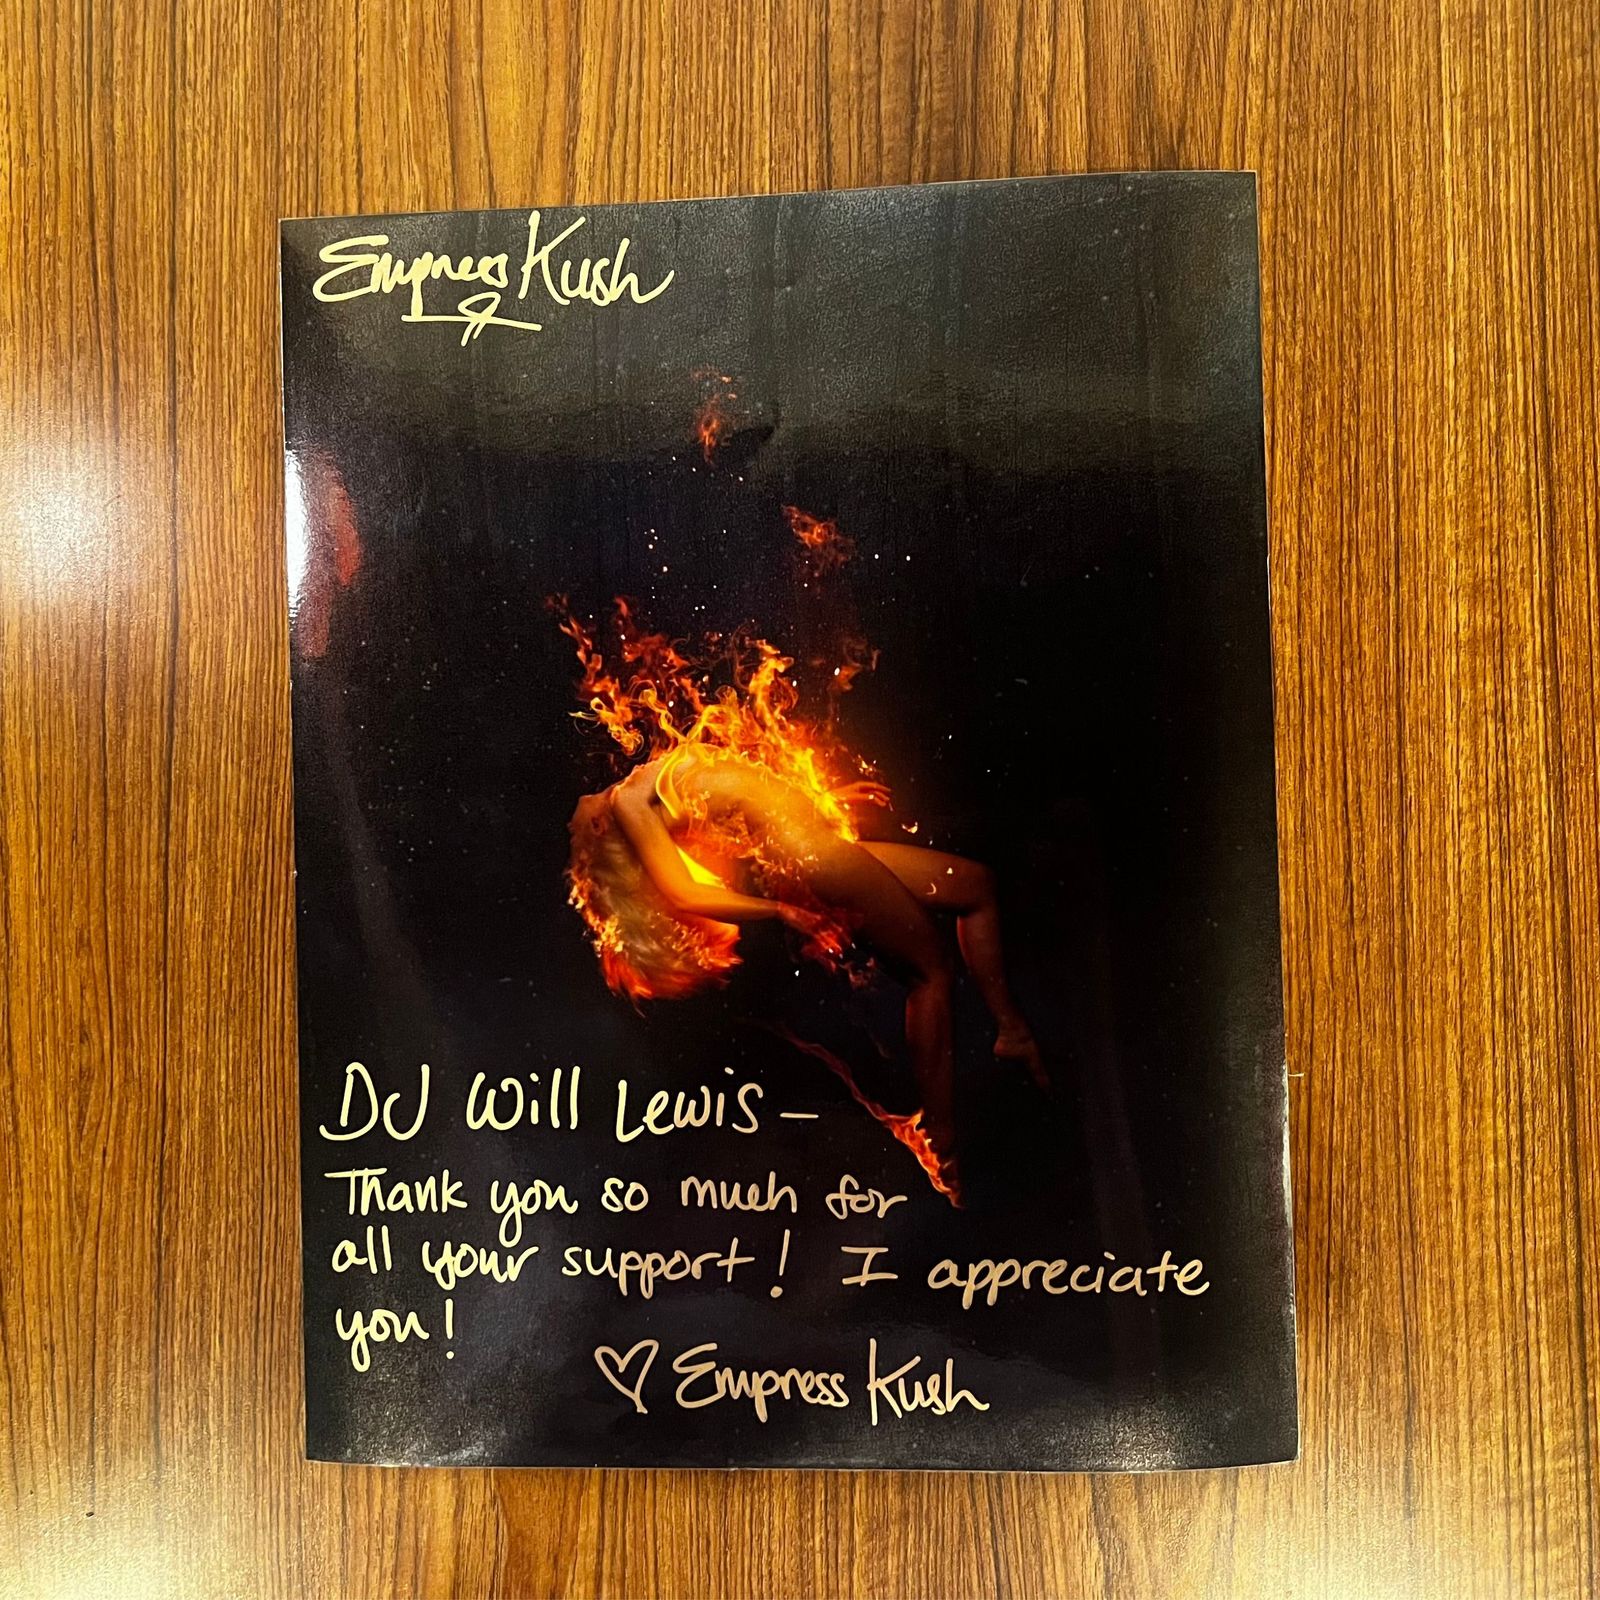 Empress Kush
DJ Will Lewis –
Thank you so much for
all your support! I appreciate
you!
♡ Empress Kush